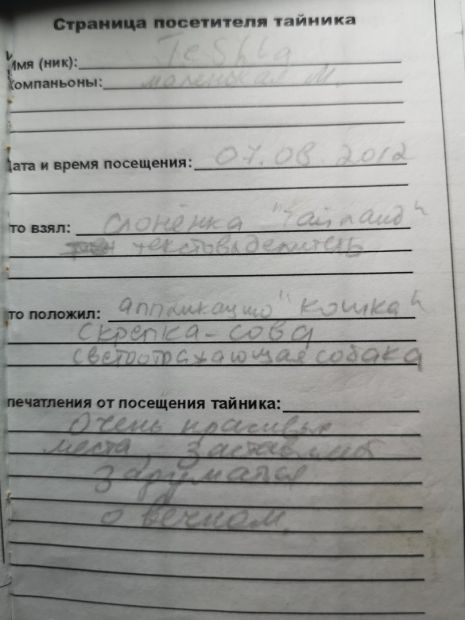 Страница посетителя тайника
Имя (ник): Teshla
Компаньоны: маленькая М.
Дата и время посещения: 07.08.2012
то взял: слонёнка "Тайланд"
текстовыделитель
то положил: аппликацию "кошка"
скрепка-сова
светоотражающая собака
печатления от посещения тайника:
Очень красивые
места, заставляет
задуматся
о вечном.